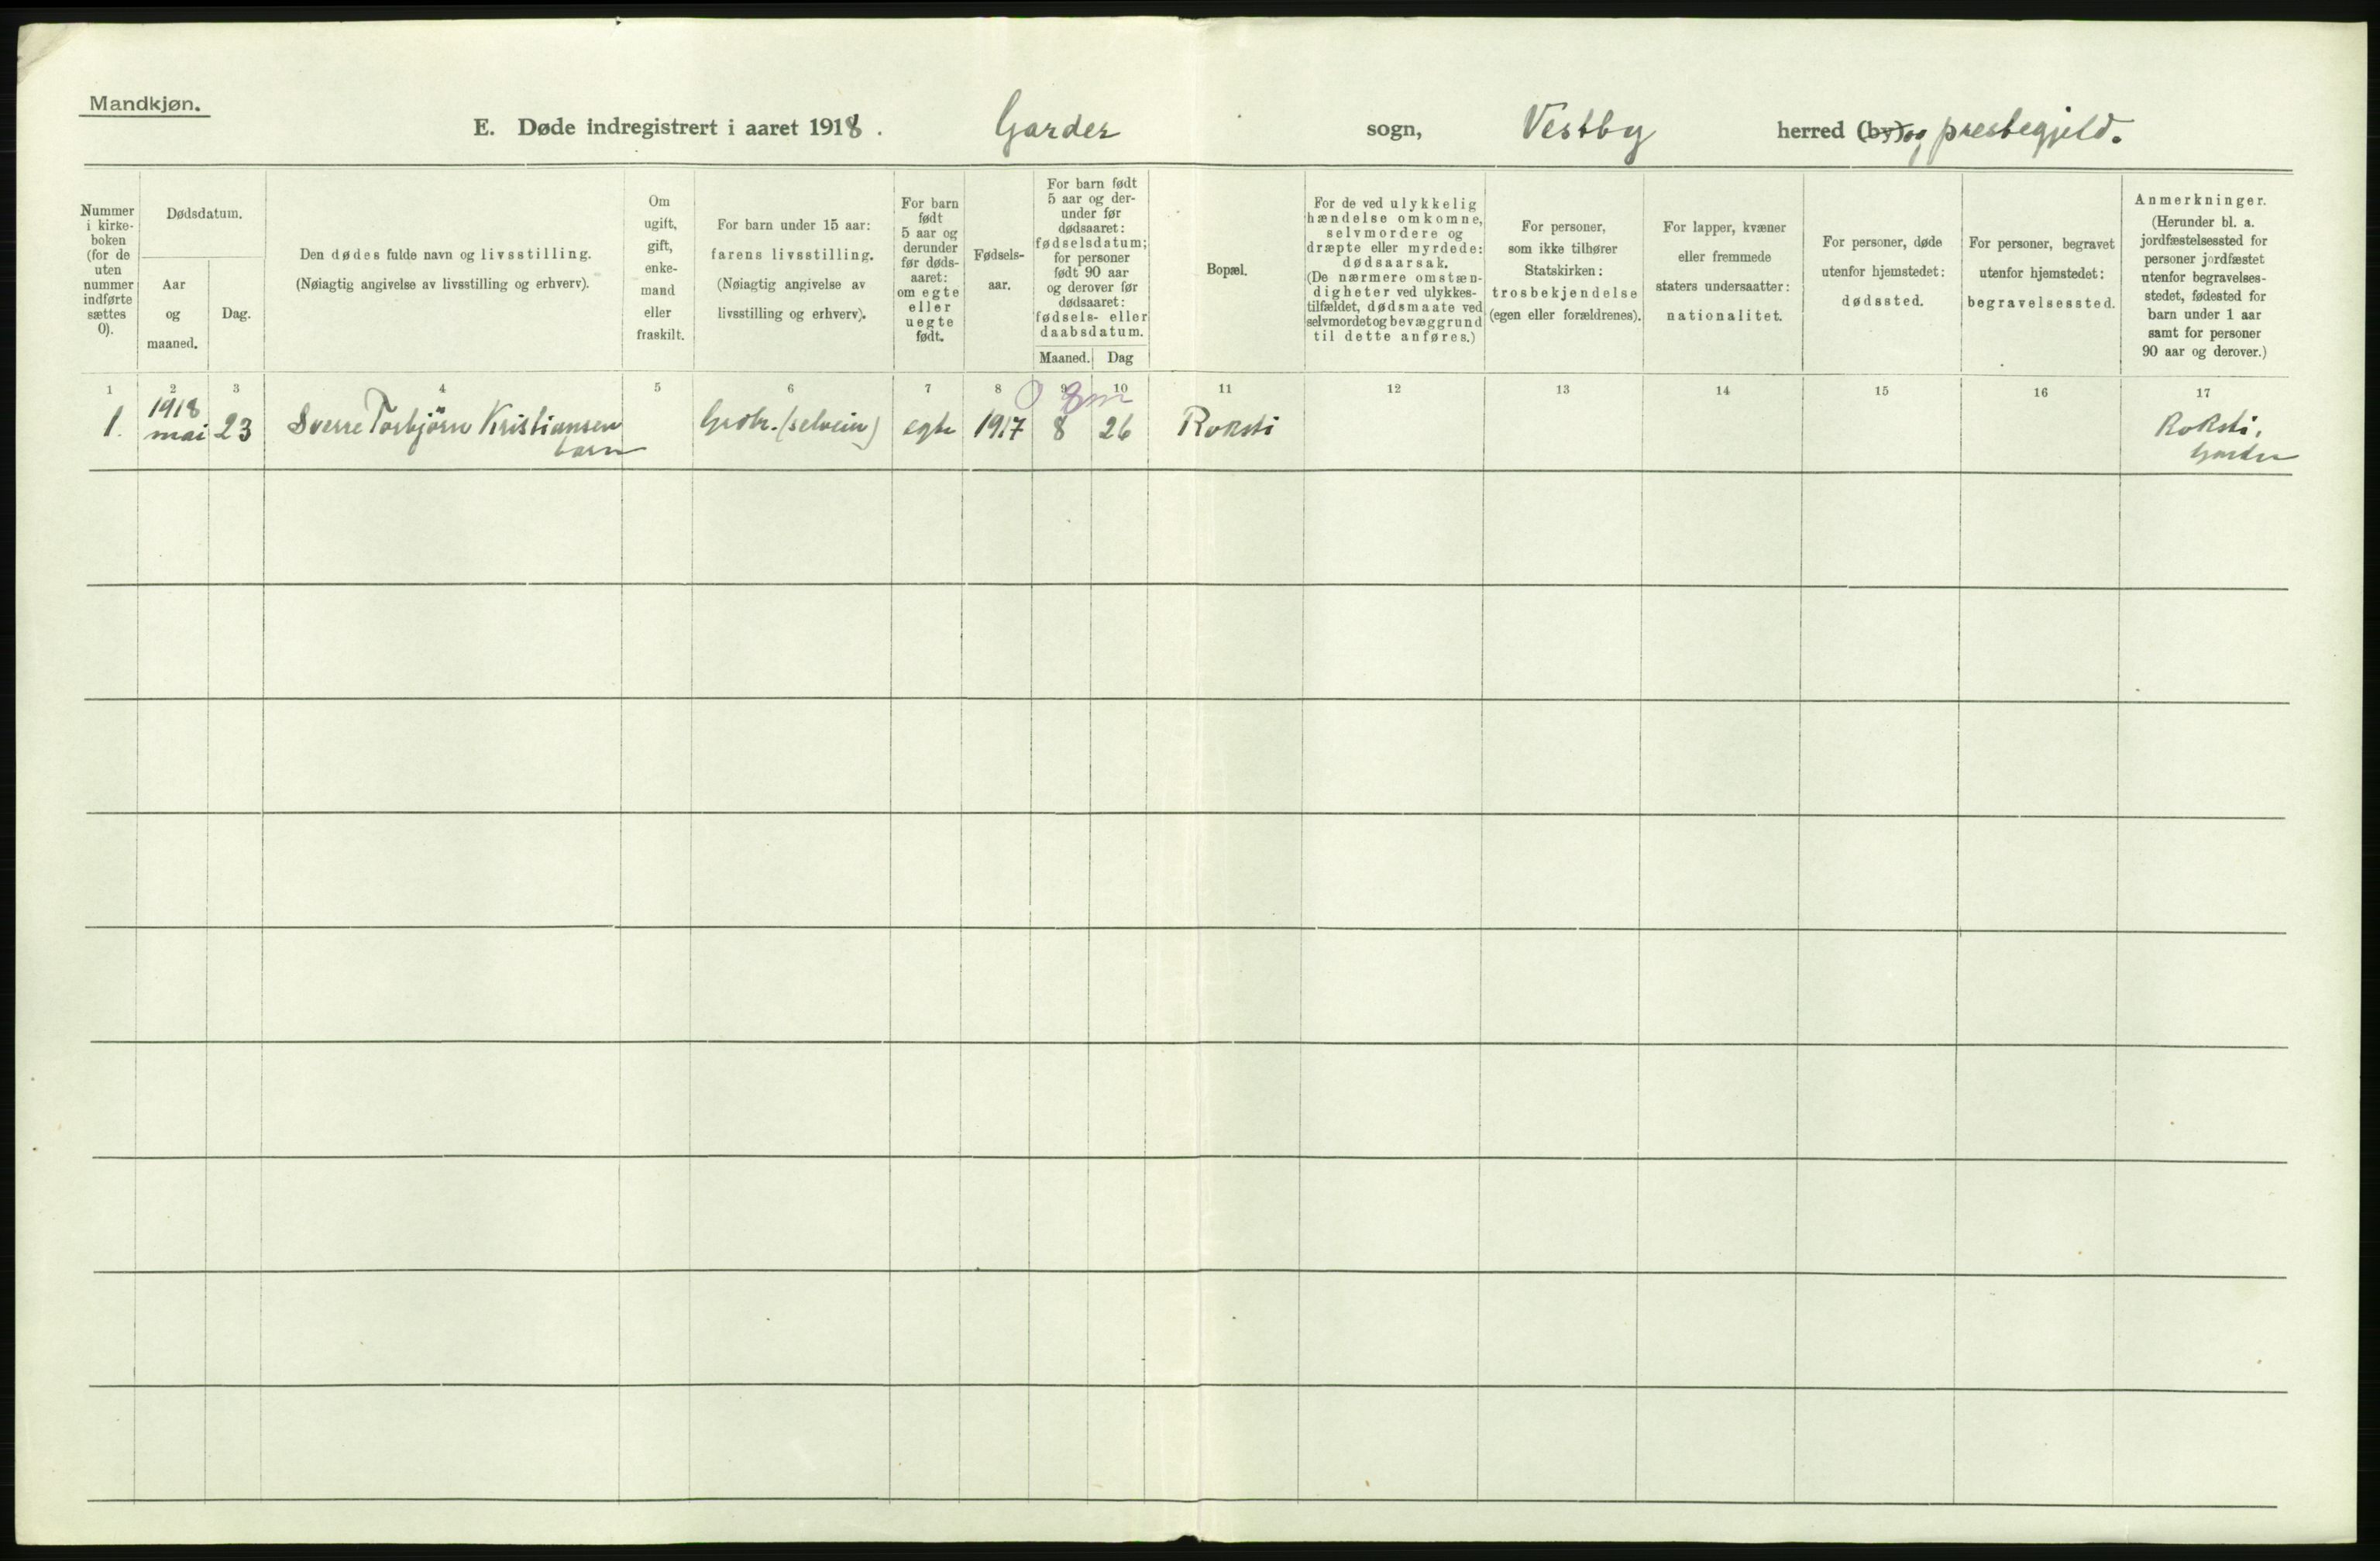 Mandkjøn.
E. Døde indregistrert i aaret 1918. Garder sogn, Vestby herred (by) og prestegjeld.
Nummer
i kirke-
boken
(for de
uten
nummer
indførte
sættes
0).
Dødsdatum.
Aar
og
maaned.
Dag.
Den dødes fulde navn og livsstilling.
(Nøiagtig angivelse av livsstilling og erhverv).
Om
ugift,
gift,
enke-
mand
eller
fraskilt.
For barn under 15 aar:
farens livsstilling.
(Nøiagtig angivelse av
livsstilling og erhverv).
For barn
født
5 aar og
derunder
før døds-
aaret:
om egte
eller
uegte
født.
Fødsels-
aar.
For barn født
5 aar og der-
under før
dødsaaret:
fødselsdatum;
for personer
født 90 aar
og derover før
dødsaaret:
fødsels- eller
daabsdatum.
Maaned. Dag
Bopæl.
For de ved ulykkelig
hændelse omkomne,
selvmordere og
dræpte eller myrdede:
dødsaarsak.
(De nærmere omstæn-
digheter ved ulykkes-
tilfældet, dødsmaate ved
selvmordet og bevæggrund
til dette anføres.)
For personer,
som ikke tilhører
Statskirken:
trosbekjendelse
(egen eller forældrenes).
For lapper, kvæner
eller fremmede
staters undersaatter:
nationalitet.
For personer, døde
utenfor hjemstedet:
dødssted.
For personer, begravet
utenfor hjemstedet:
begravelsessted.
Anmerkninger.
(Herunder bl. a.
jordfæstelsessted for
personer jordfæstet
utenfor begravelses-
stedet, fødested for
barn under 1 aar
samt for personer
90 aar og derover.)
1 2 3 4 5 6 7 8 9 10 11 12 13 14 15 16 17
0 8m
1. 1918 mai 23 Sverre Torbjörn Kristiansen Grdbr. (selveier) egte 1917 8 26 Roksti Roksti,
barn Garder